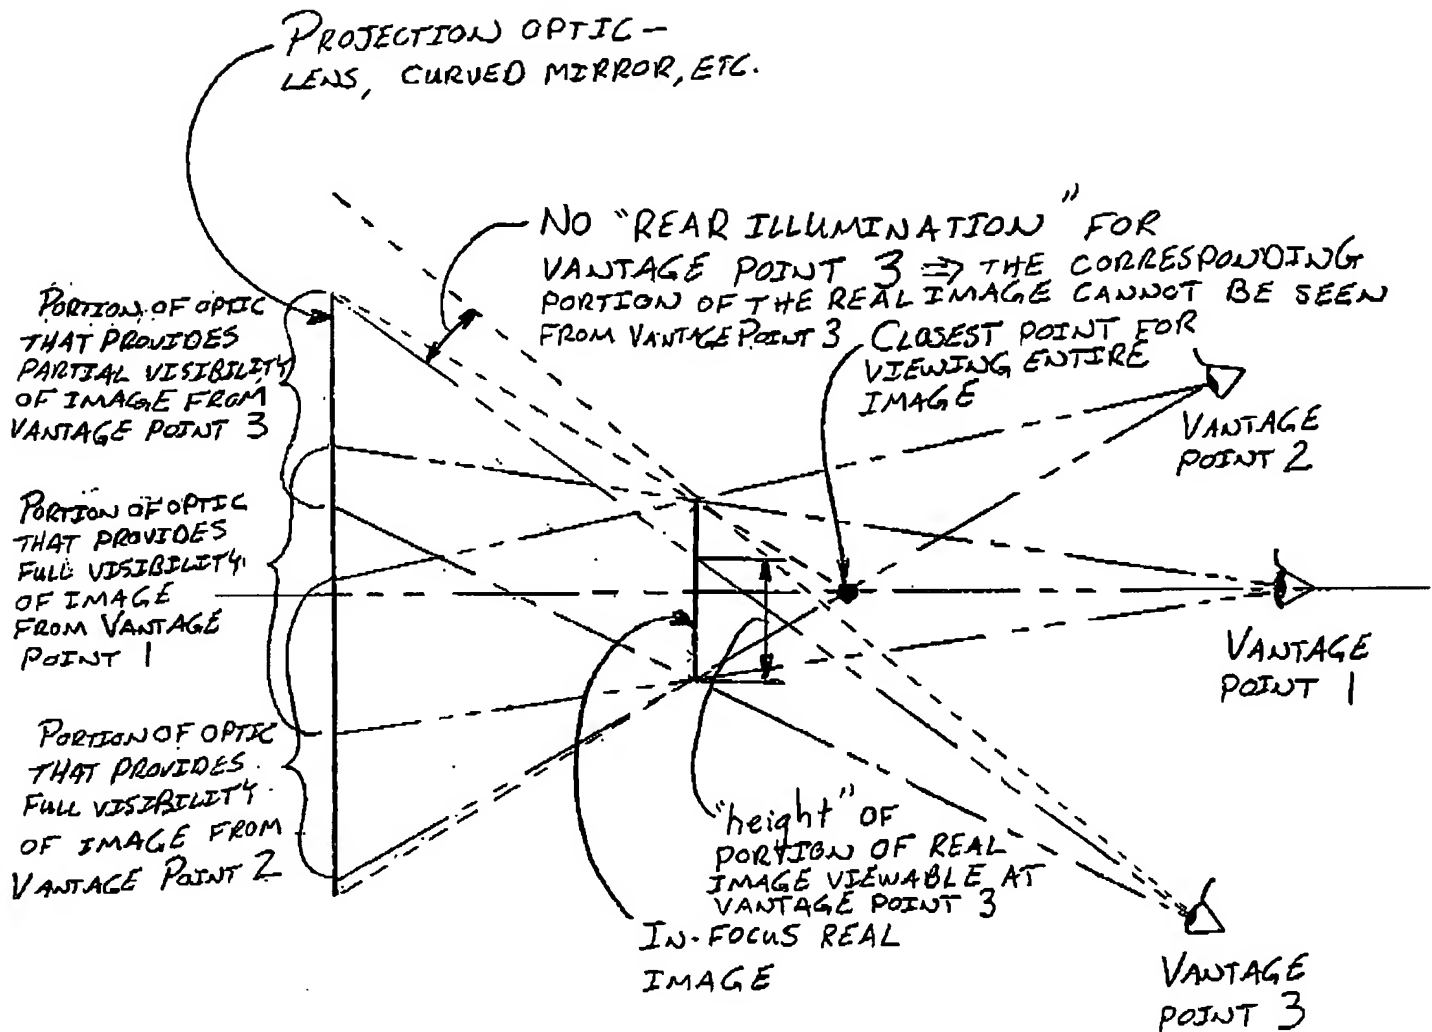 PROJECTION OPTIC –
LENS, CURVED MIRROR, ETC.
NO "REAR ILLUMINATION" FOR
VANTAGE POINT 3 ⇒ THE CORRESPONDING
PORTION OF THE REAL IMAGE CANNOT BE SEEN
FROM VANTAGE POINT 3
CLOSEST POINT FOR
VIEWING ENTIRE
IMAGE
PORTION OF OPTIC
THAT PROVIDES
PARTIAL VISIBILITY
OF IMAGE FROM
VANTAGE POINT 3
VANTAGE
POINT 2
PORTION OF OPTIC
THAT PROVIDES
FULL VISIBILITY
OF IMAGE
FROM VANTAGE
POINT 1
VANTAGE
POINT 1
PORTION OF OPTIC
THAT PROVIDES
FULL VISIBILITY
OF IMAGE FROM
VANTAGE POINT 2
"height" OF
PORTION OF REAL
IMAGE VIEWABLE AT
VANTAGE POINT 3
IN-FOCUS REAL
IMAGE
VANTAGE
POINT 3